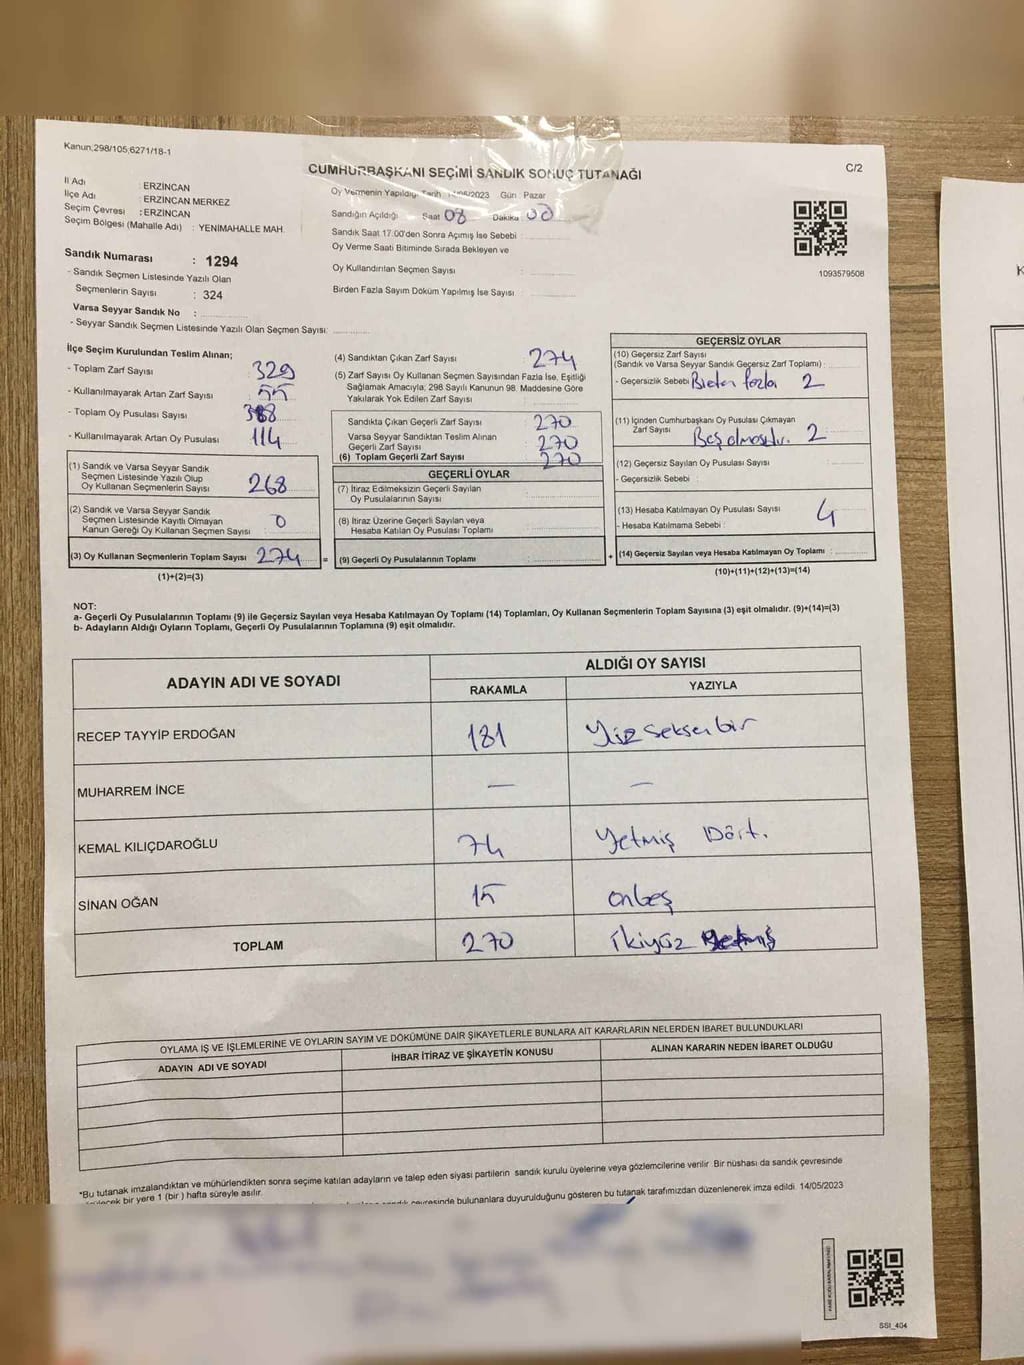 Kanun;298/105;6271/18-1
CUMHURBAŞKANI SEÇİMİ SANDIK SONUÇ TUTANAĞI
C/2
İl Adı : ERZİNCAN
İlçe Adı : ERZİNCAN MERKEZ
Seçim Çevresi : ERZİNCAN
Seçim Bölgesi (Mahalle Adı) : YENİMAHALLE MAH.
Sandık Numarası : 1294
- Sandık Seçmen Listesinde Yazılı Olan
Seçmenlerin Sayısı : 324
Varsa Seyyar Sandık No :
- Seyyar Sandık Seçmen Listesinde Yazılı Olan Seçmen Sayısı:
Oy Vermenin Yapıldığı Tarih /2023 Gün : Pazar
Sandığın Açıldığı Saat 08 Dakika 00
Sandık Saat 17:00'den Sonra Açılmış İse Sebebi :
Oy Verme Saati Bitiminde Sırada Bekleyen ve
Oy Kullandırılan Seçmen Sayısı :
Birden Fazla Sayım Döküm Yapılmış İse Sayısı :
1093579508
İlçe Seçim Kurulundan Teslim Alınan;
- Toplam Zarf Sayısı : 329
- Kullanılmayarak Artan Zarf Sayısı : 55
- Toplam Oy Pusulası Sayısı : 388
- Kullanılmayarak Artan Oy Pusulası : 114
(1) Sandık ve Varsa Seyyar Sandık
Seçmen Listesinde Yazılı Olup
Oy Kullanan Seçmenlerin Sayısı : 268
(2) Sandık ve Varsa Seyyar Sandık
Seçmen Listesinde Kayıtlı Olmayan
Kanun Gereği Oy Kullanan Seçmen Sayısı : 0
(3) Oy Kullanan Seçmenlerin Toplam Sayısı : 274 =
(1)+(2)=(3)
(4) Sandıktan Çıkan Zarf Sayısı : 274
(5) Zarf Sayısı Oy Kullanan Seçmen Sayısından Fazla İse, Eşitliği
Sağlamak Amacıyla; 298 Sayılı Kanunun 98. Maddesine Göre
Yakılarak Yok Edilen Zarf Sayısı :
Sandıkta Çıkan Geçerli Zarf Sayısı : 270
Varsa Seyyar Sandıktan Teslim Alınan
Geçerli Zarf Sayısı : 270
(6) Toplam Geçerli Zarf Sayısı : 270
GEÇERLİ OYLAR
(7) İtiraz Edilmeksizin Geçerli Sayılan
Oy Pusulalarının Sayısı :
(8) İtiraz Üzerine Geçerli Sayılan veya
Hesaba Katılan Oy Pusulası Toplamı :
(9) Geçerli Oy Pusulalarının Toplamı : +
GEÇERSİZ OYLAR
(10) Geçersiz Zarf Sayısı
(Sandık ve Varsa Seyyar Sandık Geçersiz Zarf Toplamı) :
- Geçersizlik Sebebi : Birden fazla 2
(11) İçinden Cumhurbaşkanı Oy Pusulası Çıkmayan
Zarf Sayısı : Boş olmasıdır. 2
(12) Geçersiz Sayılan Oy Pusulası Sayısı :
- Geçersizlik Sebebi :
(13) Hesaba Katılmayan Oy Pusulası Sayısı : 4
- Hesaba Katılmama Sebebi :
(14) Geçersiz Sayılan veya Hesaba Katılmayan Oy Toplamı :
(10)+(11)+(12)+(13)=(14)
NOT:
a- Geçerli Oy Pusulalarının Toplamı (9) ile Geçersiz Sayılan veya Hesaba Katılmayan Oy Toplamı (14) Toplamları, Oy Kullanan Seçmenlerin Toplam Sayısına (3) eşit olmalıdır. (9)+(14)=(3)
b- Adayların Aldığı Oyların Toplamı, Geçerli Oy Pusulalarının Toplamına (9) eşit olmalıdır.
ADAYIN ADI VE SOYADI
ALDIĞI OY SAYISI
RAKAMLA YAZIYLA
RECEP TAYYİP ERDOĞAN 181 Yüz seksen bir
MUHARREM İNCE — —
KEMAL KILIÇDAROĞLU 74 Yetmiş Dört.
SİNAN OĞAN 15 onbeş
TOPLAM 270 ikiyüz yetmiş
OYLAMA İŞ VE İŞLEMLERİNE VE OYLARIN SAYIM VE DÖKÜMÜNE DAİR ŞİKAYETLERLE BUNLARA AİT KARARLARIN NELERDEN İBARET BULUNDUKLARI
ADAYIN ADI VE SOYADI İHBAR İTİRAZ VE ŞİKAYETİN KONUSU ALINAN KARARIN NEDEN İBARET OLDUĞU
*Bu tutanak imzalandıktan ve mühürlendikten sonra seçime katılan adayların ve talep eden siyasi partilerin sandık kurulu üyelerine veya gözlemcilerine verilir. Bir nüshası da sandık çevresinde
bir yere 1 (bir) hafta süreyle asılır.
çevresinde bulunanlara duyurulduğunu gösteren bu tutanak tarafımızdan düzenlenerek imza edildi. 14/05/2023
SSI_404
K